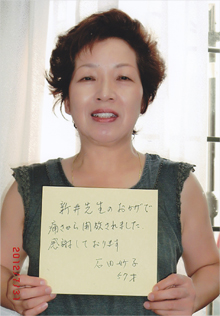 新井先生のおかげで
痛さから開放されました
感謝しております
石田 竹子